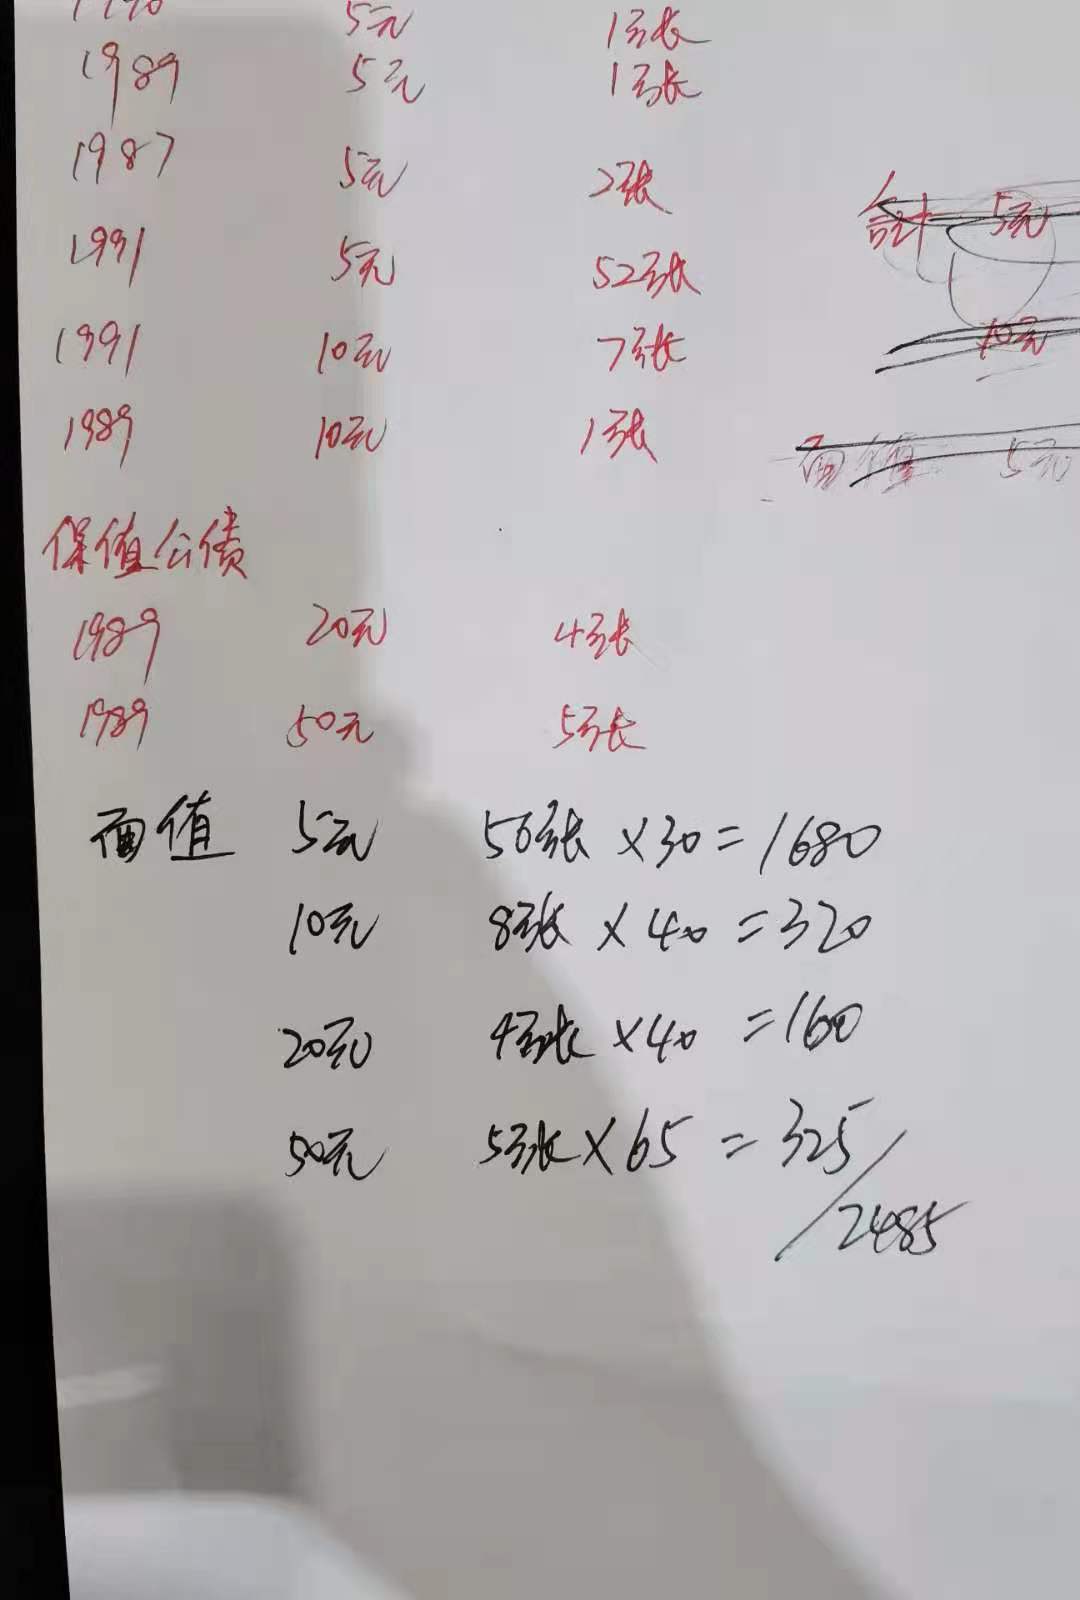 1990 5元 1张
1989 5元 1张
1987 5元 2张
合计 5元
1991 5元 52张
1991 10元 7张
10元
1989 10元 1张
面值 5元
保值公债
1989 20元 4张
1989 50元 5张
面值 5元 56张×30=1680
10元 8张×40=320
20元 4张×40=160
50元 5张×65=325
2485